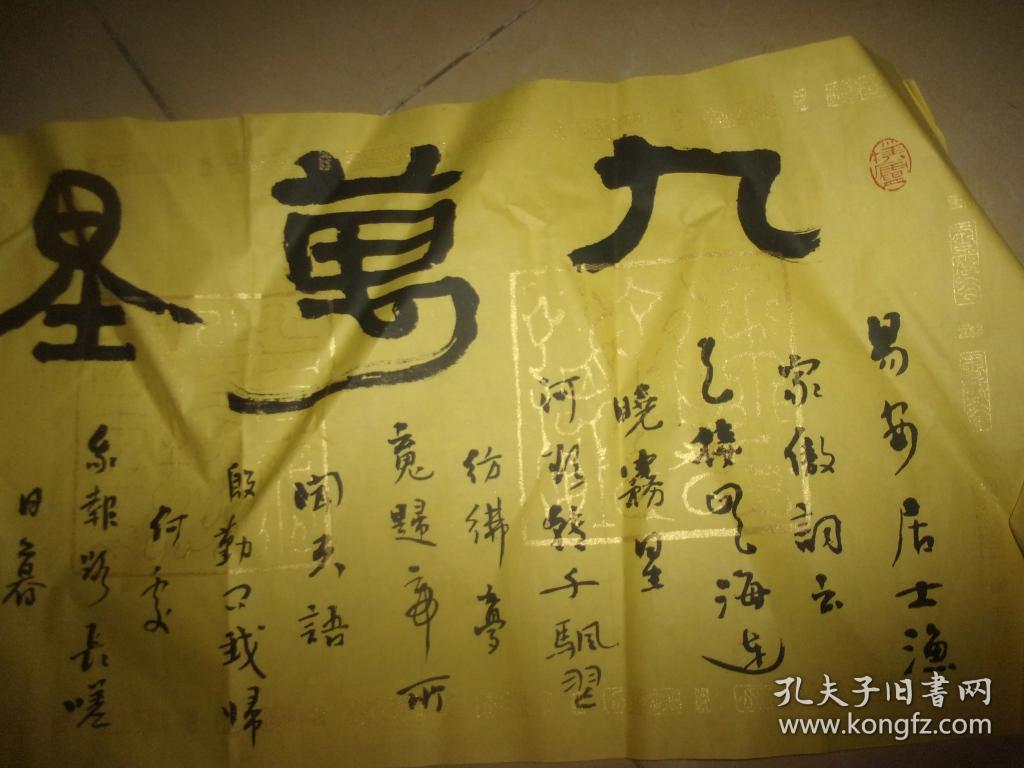 九萬里
易安居士漁
家傲詞云
天接雲海連
曉霧星
河欲轉千颿
彷彿夢
魂歸帝所
聞天語
殷勤問我歸
何處
我報路長嗟
日暮
孔夫子旧书网
www.kongfz.com